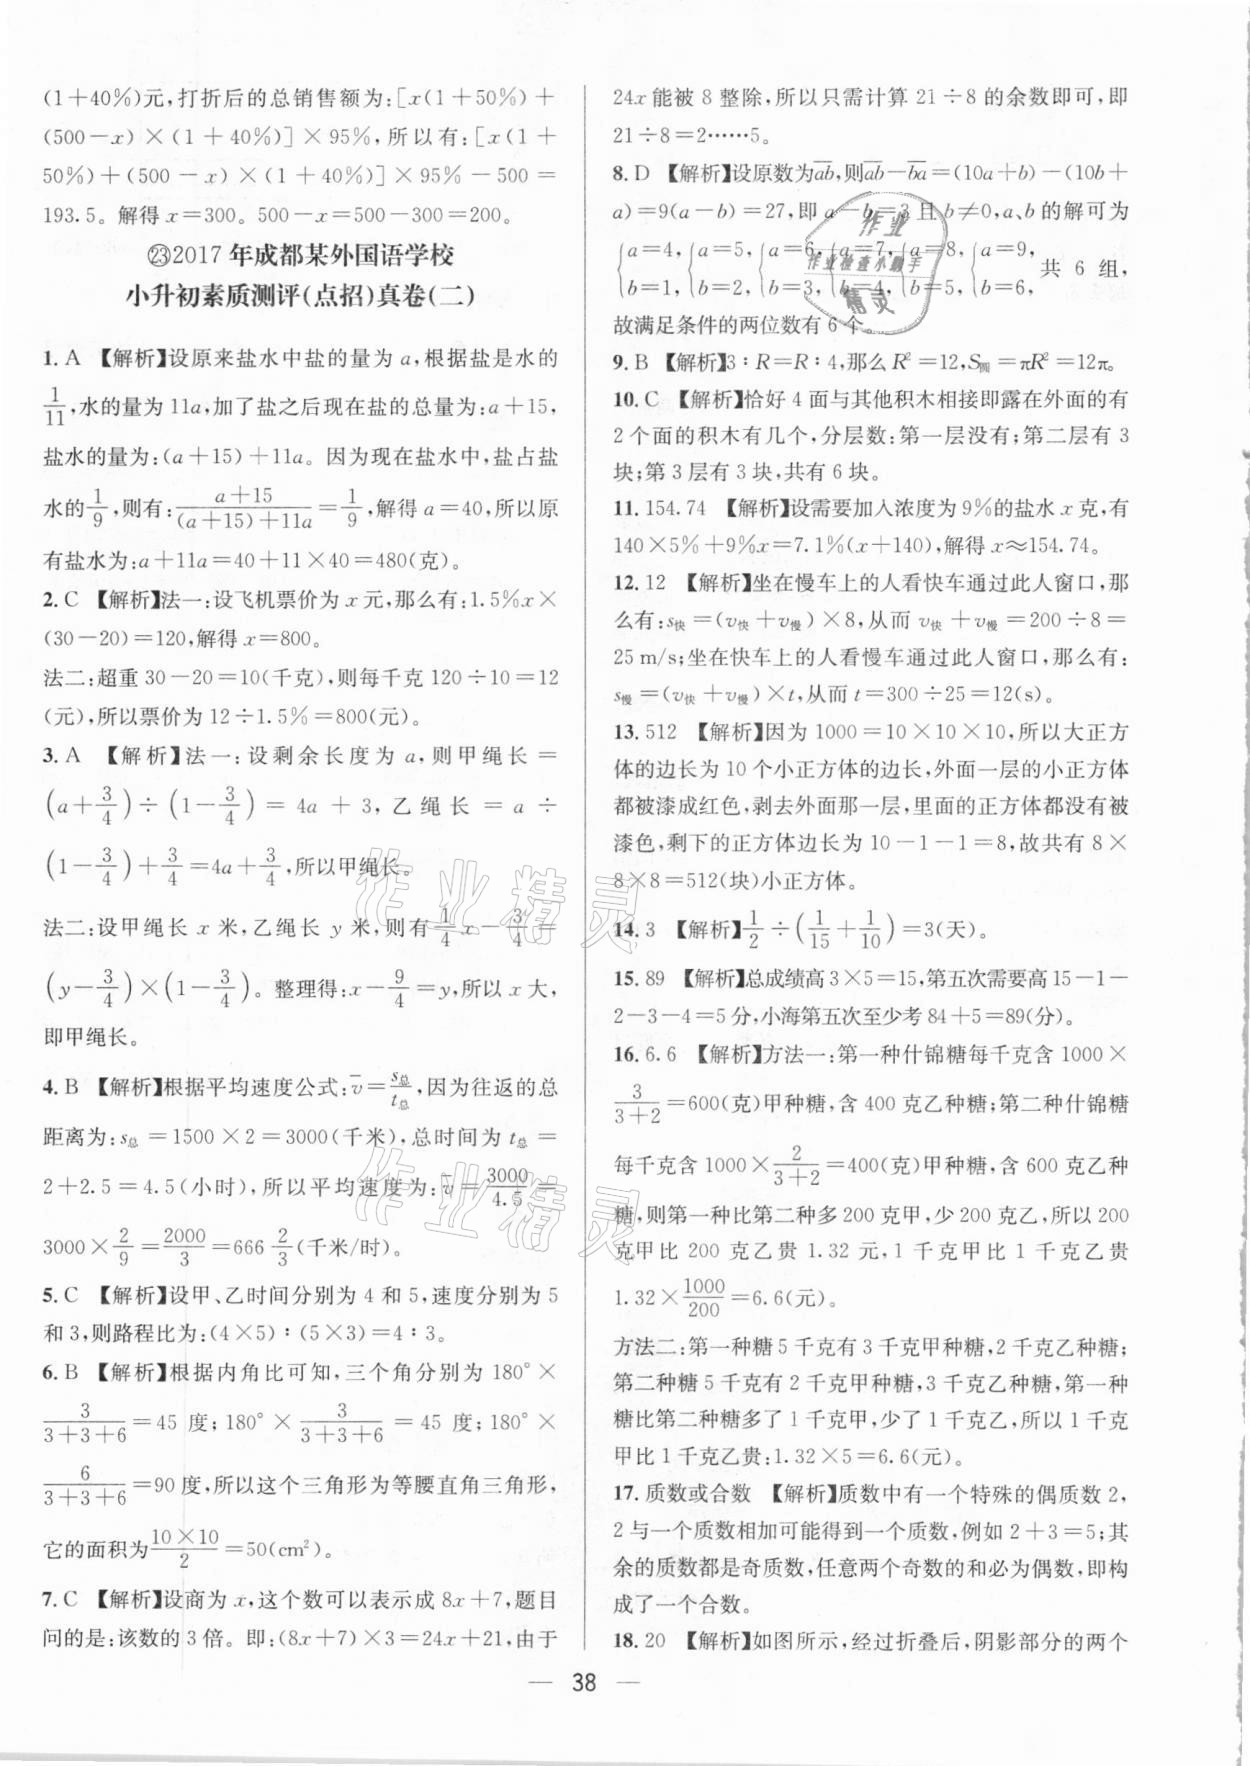 (1＋40％)元，打折后的总销售额为：[x(1＋50％)＋
(500－x)×(1＋40％)]×95％，所以有：[x(1＋
50％)＋(500－x)×(1＋40％)]×95％－500＝
193.5。解得 x＝300。500－x＝500－300＝200。
㉓2017年成都某外国语学校
小升初素质测评(点招)真卷(二)
1. A 【解析】设原来盐水中盐的量为 a，根据盐是水的
1/11，水的量为 11a，加了盐之后现在盐的总量为：a＋15，
盐水的量为：(a＋15)＋11a。因为现在盐水中，盐占盐
水的1/9，则有：(a＋15)/((a＋15)＋11a)＝1/9，解得 a＝40，所以原
有盐水为：a＋11a＝40＋11×40＝480(克)。
2. C 【解析】法一：设飞机票价为 x 元，那么有：1.5％x×
(30－20)＝120，解得 x＝800。
法二：超重 30－20＝10(千克)，则每千克 120÷10＝12
(元)，所以票价为 12÷1.5％＝800(元)。
3. A 【解析】法一：设剩余长度为 a，则甲绳长＝
(a＋3/4)÷(1－3/4)＝4a＋3，乙绳长＝a÷
(1－3/4)＋3/4＝4a＋3/4，所以甲绳长。
法二：设甲绳长 x 米，乙绳长 y 米，则有1/4x－3/4＝
(y－3/4)×(1－3/4)。整理得：x－9/4＝y，所以 x 大，
即甲绳长。
4. B 【解析】根据平均速度公式：v̄＝s总/t总，因为往返的总
距离为：s总＝1500×2＝3000(千米)，总时间为 t总＝
2＋2.5＝4.5(小时)，所以平均速度为：v̄＝3000/4.5＝
3000×2/9＝2000/3＝666 2/3(千米/时)。
5. C 【解析】设甲、乙时间分别为 4 和 5，速度分别为 5
和 3，则路程比为：(4×5)∶(5×3)＝4∶3。
6. B 【解析】根据内角比可知，三个角分别为 180°×
3/(3＋3＋6)＝45 度；180°×3/(3＋3＋6)＝45 度；180°×
6/(3＋3＋6)＝90 度，所以这个三角形为等腰直角三角形，
它的面积为(10×10)/2＝50(cm²)。
7. C 【解析】设商为 x，这个数可以表示成 8x＋7，题目
问的是：该数的 3 倍。即：(8x＋7)×3＝24x＋21，由于
24x 能被 8 整除，所以只需计算 21÷8 的余数即可，即
21÷8＝2……5。
8. D 【解析】设原数为a̅b̅，则a̅b̅－b̅a̅＝(10a＋b)－(10b＋
a)＝9(a－b)＝27，即 a－b＝3 且 b≠0，a、b 的解可为
{a＝4, {a＝5, {a＝6, {a＝7, {a＝8, {a＝9,
b＝1, b＝2, b＝3, b＝4, b＝5, b＝6, 共 6 组，
故满足条件的两位数有 6 个。
9. B 【解析】3∶R＝R∶4，那么 R²＝12，S圆＝πR²＝12π。
10. C 【解析】恰好 4 面与其他积木相接即露在外面的有
2 个面的积木有几个，分层数：第一层没有；第二层有 3
块；第 3 层有 3 块，共有 6 块。
11. 154.74 【解析】设需要加入浓度为 9％的盐水 x 克，有
140×5％＋9％x＝7.1％(x＋140)，解得 x≈154.74。
12. 12 【解析】坐在慢车上的人看快车通过此人窗口，那
么有：s快＝(v快＋v慢)×8，从而 v快＋v慢＝200÷8＝
25 m/s；坐在快车上的人看慢车通过此人窗口，那么有：
s慢＝(v快＋v慢)×t，从而 t＝300÷25＝12(s)。
13. 512 【解析】因为 1000＝10×10×10，所以大正方
体的边长为 10 个小正方体的边长，外面一层的小正方体
都被漆成红色，剥去外面那一层，里面的正方体都没有被
漆色，剩下的正方体边长为 10－1－1＝8，故共有 8×
8×8＝512(块)小正方体。
14. 3 【解析】1/2÷(1/15＋1/10)＝3(天)。
15. 89 【解析】总成绩高 3×5＝15，第五次需要高 15－1－
2－3－4＝5 分，小海第五次至少考 84＋5＝89(分)。
16. 6.6 【解析】方法一：第一种什锦糖每千克含 1000×
3/(3＋2)＝600(克)甲种糖，含 400 克乙种糖；第二种什锦糖
每千克含 1000×2/(3＋2)＝400(克)甲种糖，含 600 克乙种
糖，则第一种比第二种多 200 克甲，少 200 克乙，所以 200
克甲比 200 克乙贵 1.32 元，1 千克甲比 1 千克乙贵
1.32×1000/200＝6.6(元)。
方法二：第一种糖 5 千克有 3 千克甲种糖，2 千克乙种糖；
第二种糖 5 千克有 2 千克甲种糖，3 千克乙种糖，第一种
糖比第二种糖多了 1 千克甲，少了 1 千克乙，所以 1 千克
甲比 1 千克乙贵：1.32×5＝6.6(元)。
17. 质数或合数 【解析】质数中有一个特殊的偶质数 2，
2 与一个质数相加可能得到一个质数，例如 2＋3＝5；其
余的质数都是奇质数，任意两个奇数的和必为偶数，即构
成了一个合数。
18. 20 【解析】如图所示，经过折叠后，阴影部分的两个
— 38 —
作业
作业检查小助手
精灵
作业精灵
作业精灵